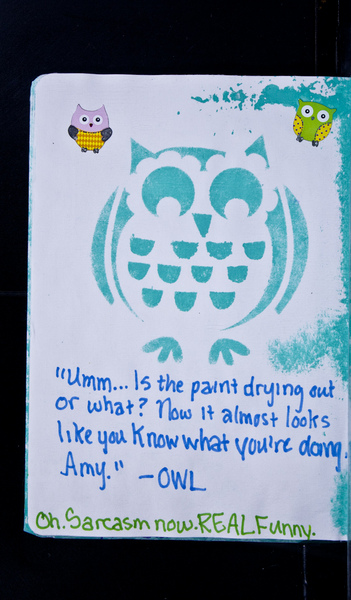 "Umm... Is the paint drying out
or what? Now it almost looks
like you know what you're doing,
Amy." -OWL
Oh. Sarcasm now. REAL Funny.